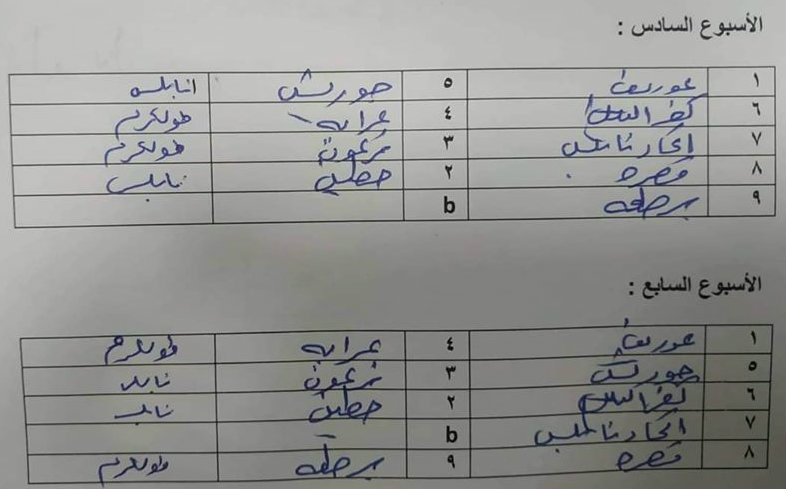 الأسبوع السادس :
١ عوريف ٥ جوريش نابلس
٦ كفر اللبد ٤ عرابه طولكرم
٧ اتحاد نابلس ٣ فرعون طولكرم
٨ قصره ٢ حطين نابلس
٩ برطعه b
الأسبوع السابع :
١ عوريف ٤ عرابه طولكرم
٥ جوريش ٣ فرعون نابلس
٦ كفر اللبد ٢ حطين نابلس
٧ اتحاد نابلس b -
٨ قصره ٩ برطعه طولكرم